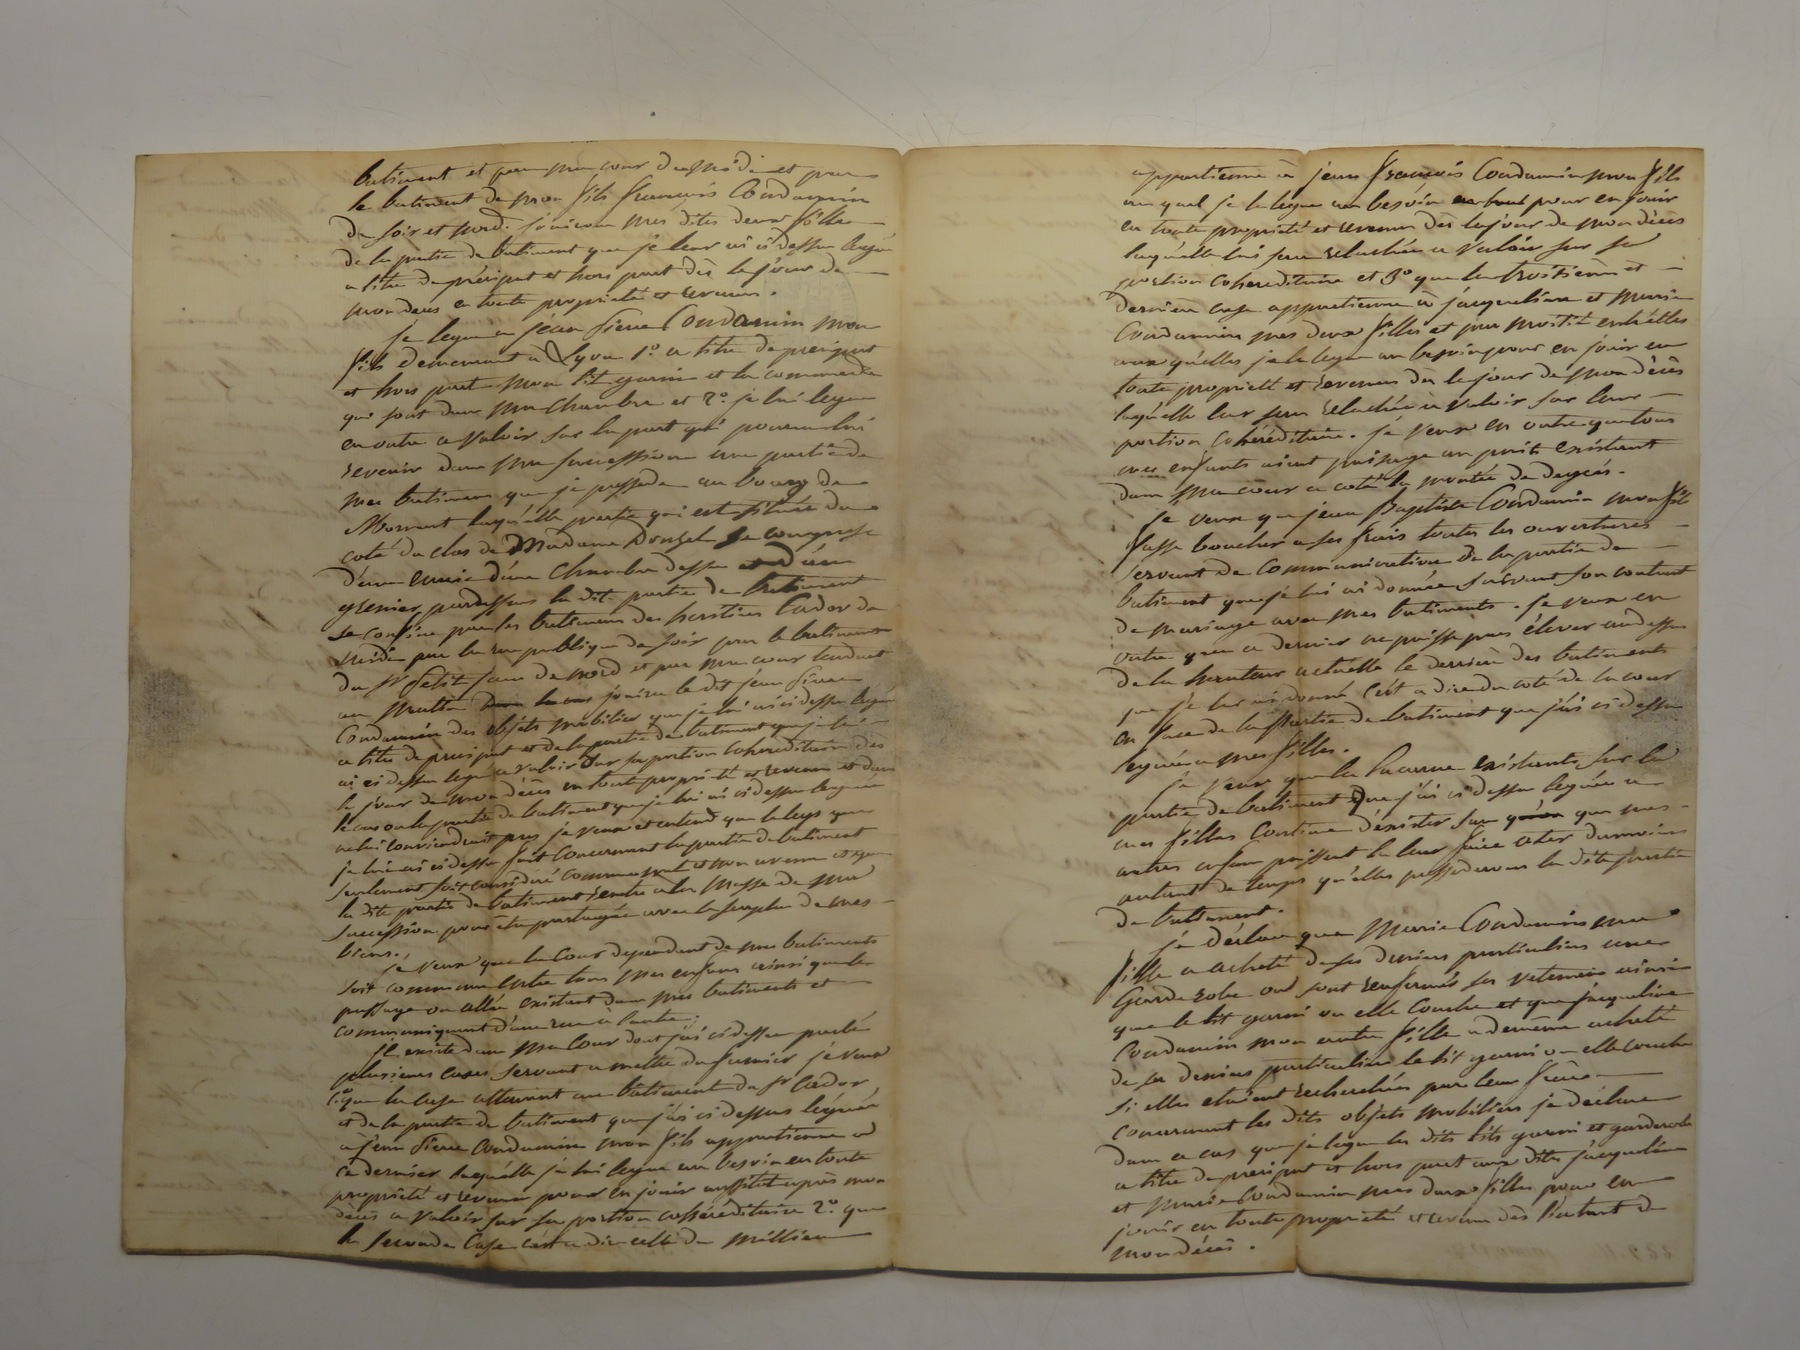 batiment et par ma cour de midi et par
le batiment de mon fils françois Condamin
de soir et nord. jouiront mes dites deux filles
de la partie de batiment que je leur ai ci dessus léguée
a titre de préciput et hors part dès le jour de
mon décès en toute propriété et revenus.
je legue a jean Pierre Condamin mon
fils demeurant à Lyon 1o. a titre de preciput
et hors part mon lit garni et la commode
qui sont dans ma chambre et 2o. je lui legue
en outre a valoir sur la part qui pourra lui
revenir dans ma succession une partie de
mes batimens que je possede au bourg de
Mornant laquelle partie qui est située du
coté du clos de Madame Donzel se compose
d'une écurie d'une chambre dessus et d'un
grenier pardessus la dite partie de batiment
se confine par les batimens des heritiers Cador de
midi par la rue publique de soir par le batiment
du Sr. Petit jean de nord et par ma cour tendant
au matin jouira le dit jean Pierre
Condamin des objets mobilier que je lui ai ci dessus légués
a titre de preciput et de la partie de batiment que je lui
ai ci dessus legué a valoir sur sa portion cohereditaire dès
le jour de mon décès en toute propriété et revenu et dans
le cas ou la partie de batiment que je lui ai ci dessus leguée
ne lui conviendrait pas je veux et entend que le legs que
je lui ai ci dessus fait concernant la partie de batiment
seulement soit considéré comme nul et non avenu et que
la dite partie de batiment rentre a la masse de ma
succession pour être partagée avec le surplus de mes
biens.
je veux que la cour dependant de mes batiments
soit commune entre tous mes enfans ainsi que le
passage ou allée existant dans mes batiments et
communiquant d'une rue à l'autre;
il existe dans ma cour dont j'ai ci dessus parlé
plusieurs cases servant a mettre du fumier je veux
1o. que la case attenant au batiment du Sr. Cador,
et de la partie de batiment que j'ai ci dessus léguée
a jean Pierre Condamin mon fils appartienne a
ce dernier laquelle je lui legue au besoin en toute
propriété et revenu pour en jouir aussitot après mon
décès a valoir sur sa portion cohéréditaire 2o. que
la seconde case c'est a dire celle du millieu
appartienne à jean françois Condamin mon fils
au quel je la legue au besoin pour en jouir
en toute propriété et revenu dès le jour de mon décès
laquelle lui sera relachée a valoir sur sa
portion cohereditaire et 3o. que la troisième et
dernière case appartienne à jacqueline et Marie
Condamin mes deux filles et par moitié entr'elles
aux quelles je la legue au besoin pour en jouir en
toute propriété et revenus dès le jour de mon décès
laquelle leur sera relachée a valoir sur leur
portion cohéréditaire. je veux en outre que tous
mes enfants aient puisage au puits existant
dans ma cour a coté la montée de degrés.
je veux que jean Baptiste Condamin mon fils
fasse boucher a ses frais toutes les ouvertures
servant de communication de la partie de
batiment que je lui ai donnée suivant son contrat
de mariage avec mes batiments. je veux en
outre que ce dernier ne puisse pas élever au dessus
de la hauteur actuelle le derrière des batiments
que je lui ai donné c'est a dire du coté de la cour
en face de la partie de batiment que j'ai ci dessus
léguée a mes filles.
je veux que la lucarne existante sur la
partie de batiment que j'ai ci dessus leguée a
mes filles continue d'exister sans que mes
autres enfans puissent la leur faire oter du moins
autant de temps qu'elles possederont la dite partie
de batiment.
je déclare que Marie Condamin ma
fille a acheté de ses deniers particuliers une
Garderobe ou sont renfermés ses vetemens ainsi
que le lit garni ou elle couche et que jacqueline
Condamin mon autre fille a de même acheté
de ses deniers particuliers le lit garni ou elle couche
si elles étaient recherchées par leur frères
concernant les dits objets mobiliers je déclare
dans ce cas que je legue les dits lits garni et garderobe
a titre de preciput et hors part aux dites jacqueline
et Marie Condamin mes deux filles pour en
jouir en toute propriété et revenu dès l'instant de
mon décès.